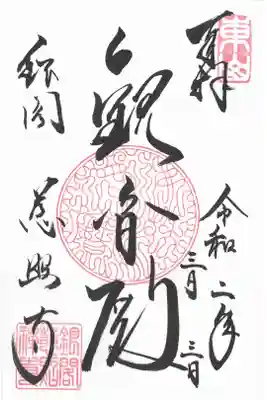 東山
奉拝
令和二年
三月三日
観音殿
銀閣
慈照寺